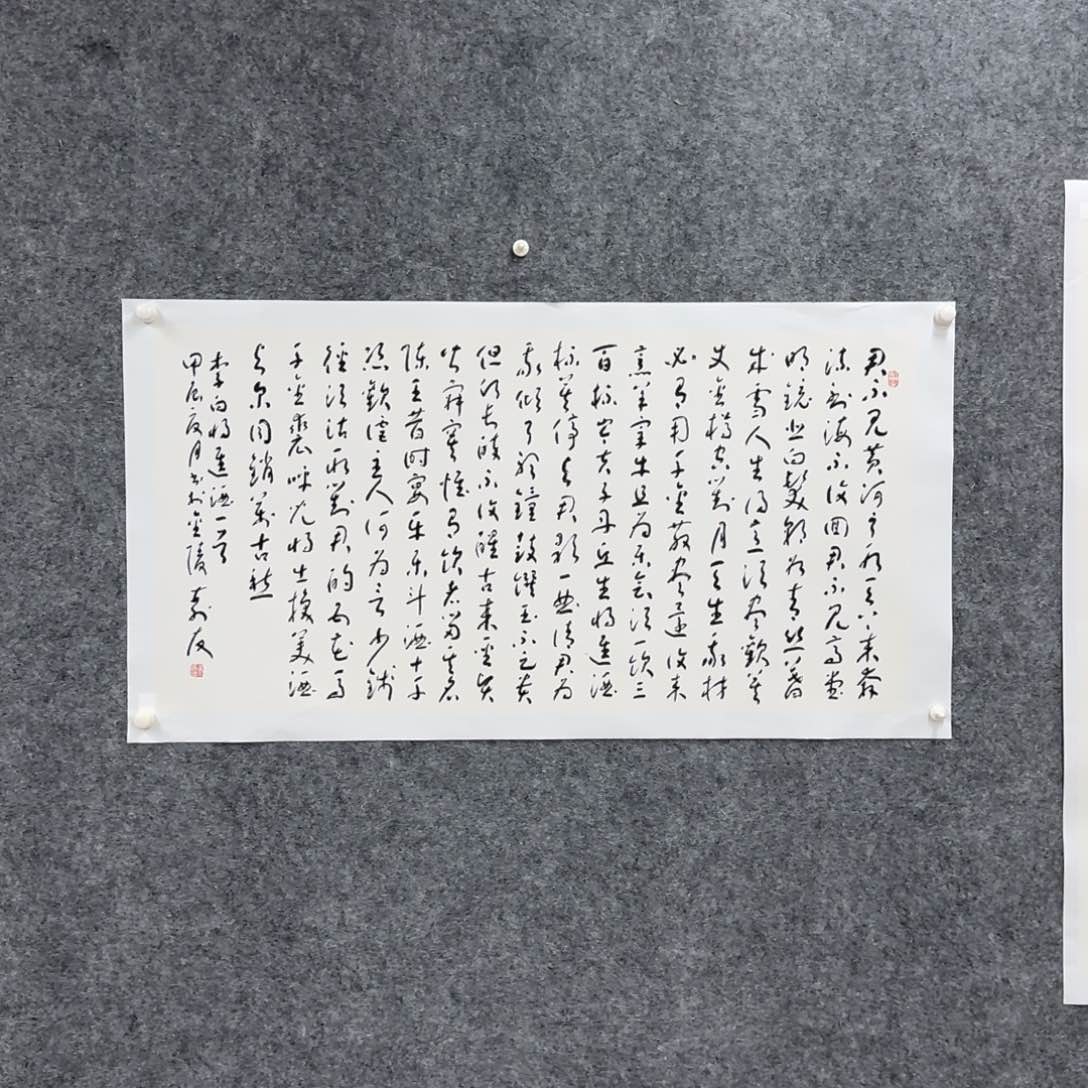 君不见黄河之水天上来奔
流到海不復回君不见高堂
明镜悲白髮朝如青丝暮
成雪人生得意须尽歡莫
使金樽空對月天生我材
必有用千金散尽还復来
烹羊宰牛且为乐会须一饮三
百杯岑夫子丹丘生将进酒
杯莫停与君歌一曲请君为
我倾耳听鐘鼓馔玉不足贵
但願长醉不復醒古来圣贤
皆寂寞惟有饮者留其名
陈王昔时宴平乐斗酒十千
恣歡谑主人何为言少钱
径须沽取對君酌五花马
千金裘呼儿将出换美酒
与尔同销萬古愁
李白将进酒一首
甲辰夏月书於金陵 友